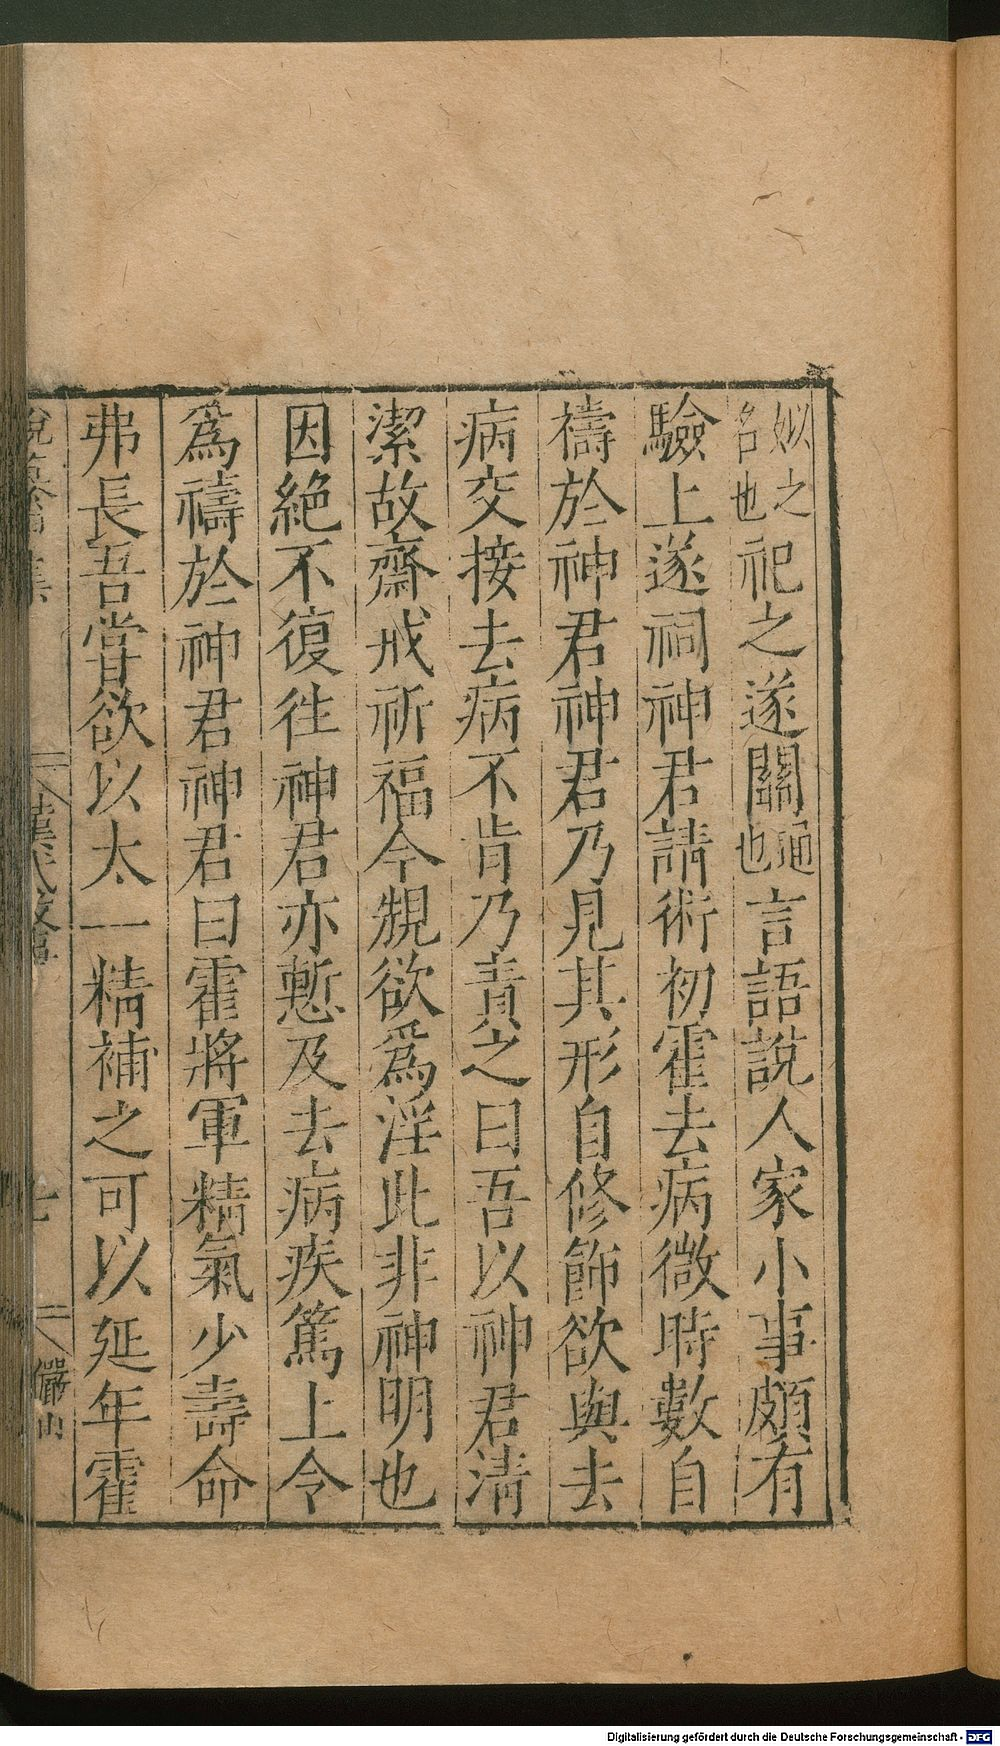 姒之名也祀之遂關通也言語說人家小事頗有
驗上遂祠神君請術初霍去病微時數自
禱於神君神君乃見其形自修飾欲與去
病交接去病不肯乃責之曰吾以神君清
潔故齋戒祈福今規欲爲淫此非神明也
因絕不復往神君亦慙及去病疾篤上令
爲禱於神君神君曰霍將軍精氣少壽命
弗長吾嘗欲以太一精補之可以延年霍
漢武故事 七 儼山
Digitalisierung gefördert durch die Deutsche Forschungsgemeinschaft - DFG